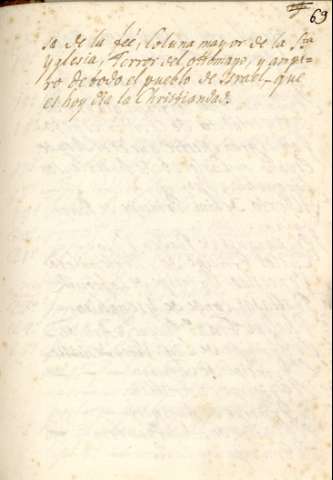 69
sa de la fee, Coluna mayor de la Sta
yglesia, Terror del ottomano, y ampa-
ro de todo el pueblo de Israel, que
es hoy dia la Christiandad.